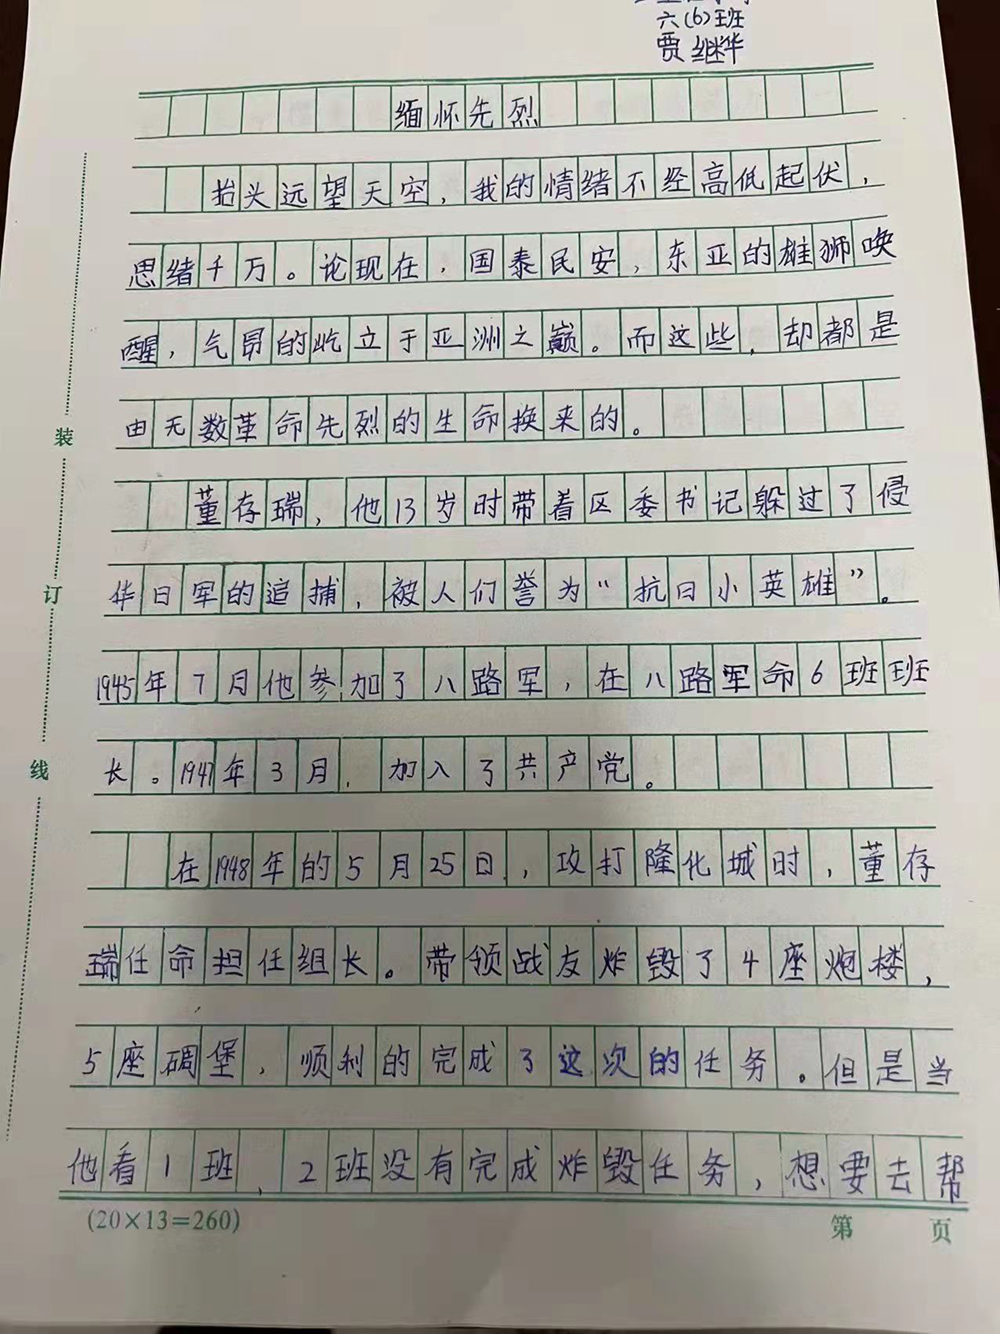 六(6)班
贾继华
缅怀先烈
抬头远望天空，我的情绪不经高低起伏，
思绪千万。论现在，国泰民安，东亚的雄狮唤
醒，气昂的屹立于亚洲之巅。而这些，却都是
由无数革命先烈的生命换来的。
董存瑞，他13岁时带着区委书记躲过了侵
华日军的追捕，被人们誉为“抗日小英雄”。
1945年7月他参加了八路军，在八路军命6班班
长。1947年3月，加入了共产党。
在1948年的5月25日，攻打隆化城时，董存
瑞任命担任组长。带领战友炸毁了4座炮楼，
5座碉堡，顺利的完成了这次的任务。但是当
他看1班，2班没有完成炸毁任务，想要去帮
(20×13=260)
第 页
装
订
线